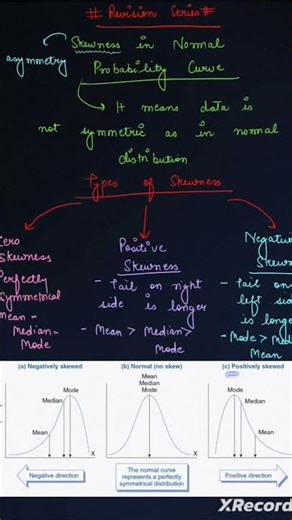 # Revision Series #
Skewness in Normal
asymmetry
Probability Curve
It means data is
not symmetric as in normal
distribution
Types of Skewness
Skewness
Perfectly
Symmetrical
Mean =
Median =
Mode
Positive
Skewness
- Tail on right
side is longer
- Mean > Median >
Mode
- Tail on
is longer
Mean
(a) Negatively skewed
Mode
Median
Mean
X
Negative direction
(b) Normal (no skew)
Mean
Median
Mode
X
The normal curve
represents a perfectly
symmetrical distribution
(c) Positively skewed
Mode
Median
Mean
X
Positive direction
XRecord